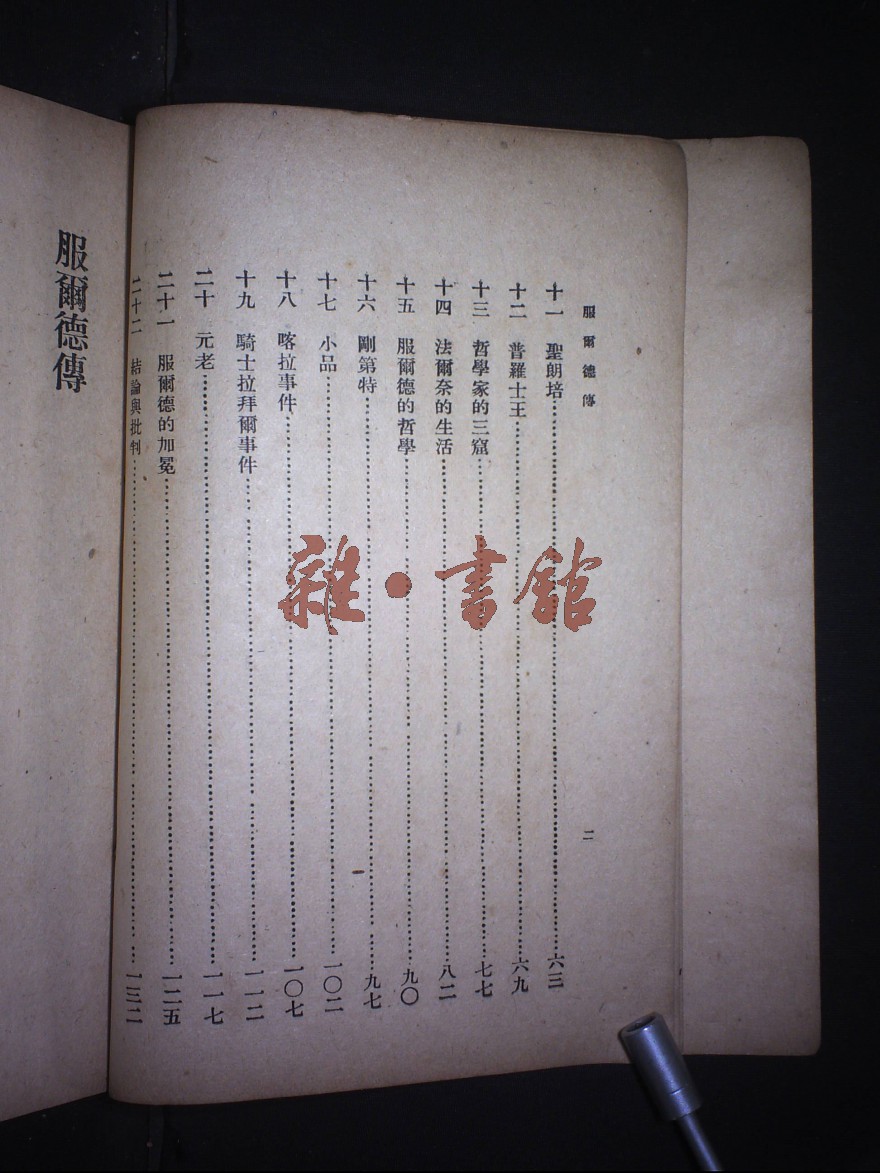 服爾德傳
二
十一 聖朗培……六三
十二 普羅士王……六九
十三 哲學家的三窟……七七
十四 法爾奈的生活……八二
十五 服爾德的哲學……九〇
十六 剛第特……九七
十七 小品……一〇二
十八 喀拉事件……一〇七
十九 騎士拉拜爾事件……一一二
二十 元老……一一七
二十一 服爾德的加冕……一二五
二十二 結論與批判……一三二
服爾德傳
雜·書館